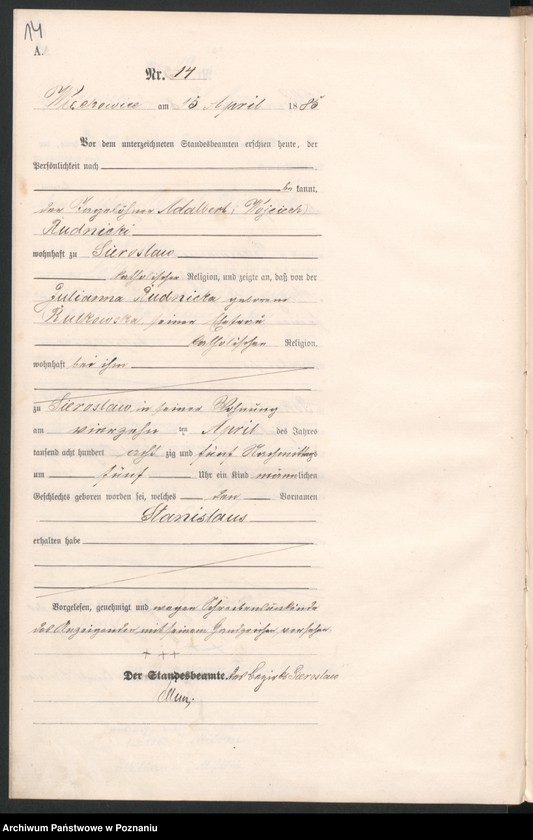 14
A.
Nr. 14
am 15 April 1885
Vor dem unterzeichneten Standesbeamten erschien heute, der
Persönlichkeit nach
be kannt,
der Tagelöhner Adalbert, Wojciech
Rudnicki
wohnhaft zu Sieroslaw
katholischer Religion, und zeigte an, daß von der
Julianna Rudnicka geborene
Rutkowska seiner Ehefrau
katholischer Religion,
wohnhaft bei ihm
zu Sieroslaw in seiner Wohnung
am vierzehn ten April des Jahres
tausend acht hundert acht zig und fünf Nachmittags
um fünf Uhr ein Kind männlichen
Geschlechts geboren worden sei, welches den Vornamen
Stanislaus
erhalten habe
Vorgelesen, genehmigt und wegen Schreibensunkunde
des Anzeigenden mit seinem Handzeichen versehen.
+ + +
Der Standesbeamte. des Bezirks Sieroslaw
Archiwum Państwowe w Poznaniu